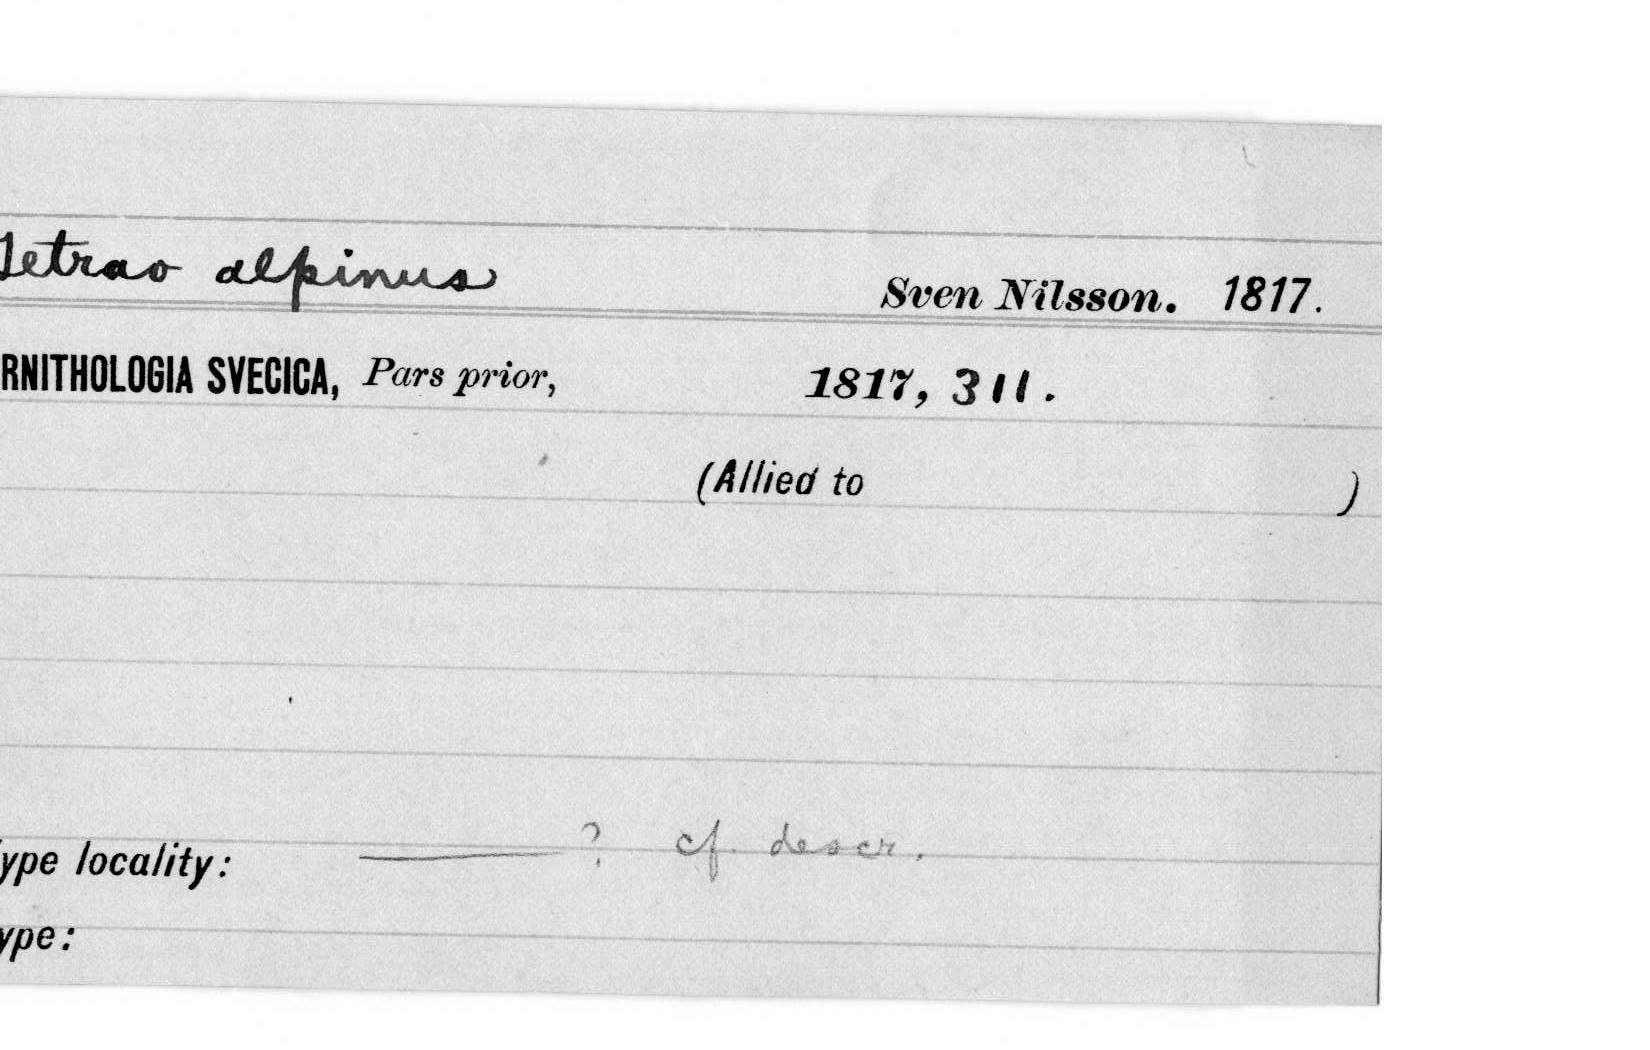 Tetrao alpinus Sven Nilsson. 1817.
RNITHOLOGIA SVECICA, Pars prior, 1817, 311.
(Allied to )
ype locality: ? cf. descr.
ype: